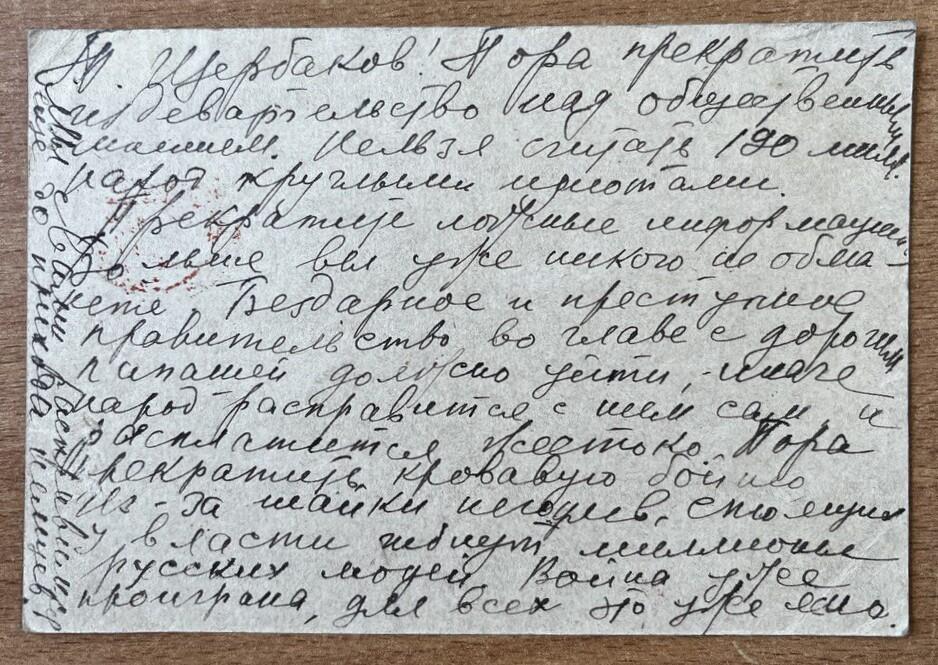 Т. Щербаков! Пора прекратить
издевательство над общественным
мнением. Нельзя считать 190 милл.
народ круглыми идиотами.
Прекратите ложные информации
больше вы уже никого не обма-
нете. Бездарное и преступное
правительство во главе с дорогим
папашей должно уйти, иначе
народ расправится с ним сам и
расплатится жестоко. Пора
прекратить кровавую бойню
Из-за шайки негодяев, стоящих
у власти гибнут миллионы
русских людей. Война уже
проиграна, для всех это уже ясно.
Мы с вами расправимся
еще до прихода немцев!